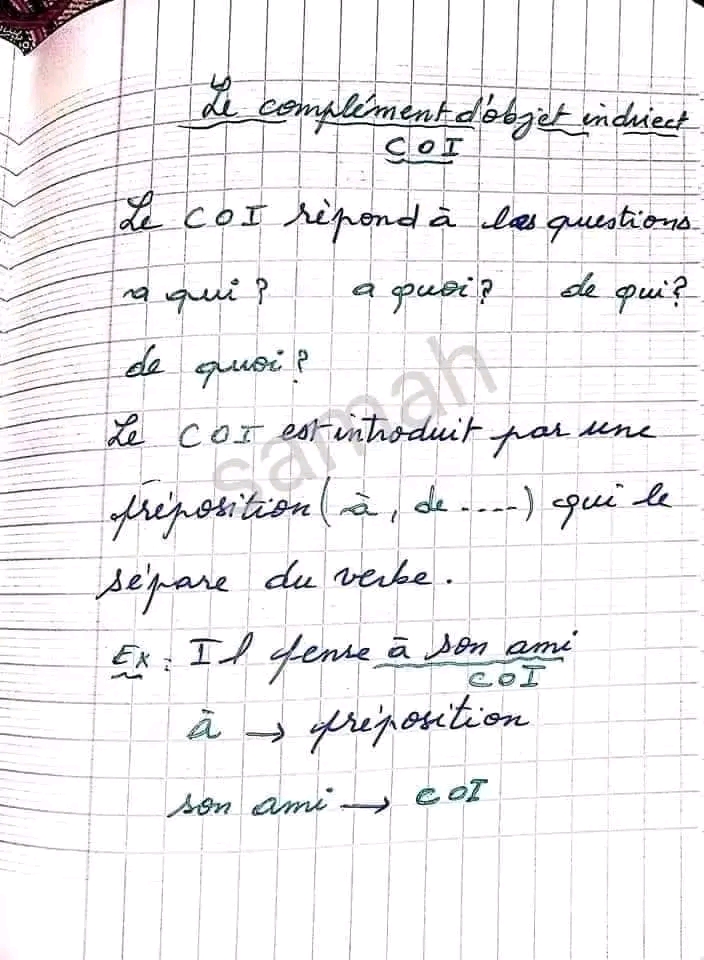 Le complément d'objet indirect
COI
Le COI répond à les questions
a qui? a quoi? de qui?
de quoi?
samah
Le COI est introduit par une
préposition (à, de ....) qui le
sépare du verbe.
Ex: Il pense à son ami
COI
à → préposition
son ami → COI